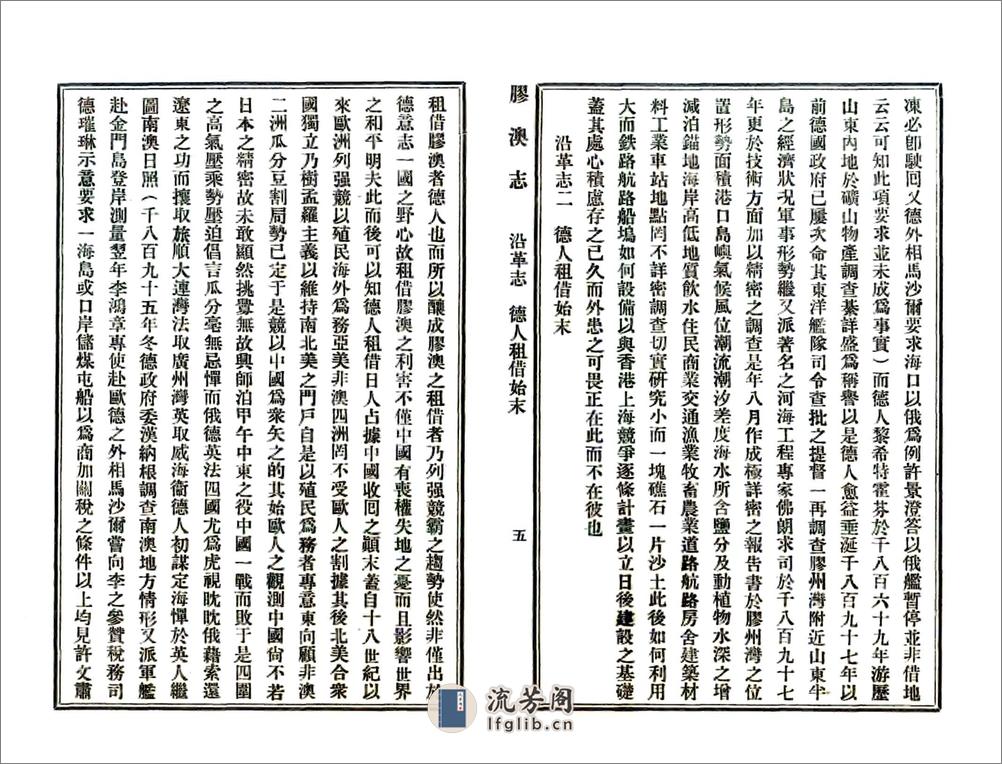 凍必卽駛回又德外相馬沙爾要求海口以俄爲例許景澄答以俄艦暫停並非借地
云云可知此項要求並未成爲事實）而德人黎希特霍芬於千八百六十九年游歷
山東內地於礦山物產調查綦詳盛爲稱譽以是德人愈益垂涎千八百九十七年以
前德國政府已屢次命其東洋艦隊司令查批之提督一再調查膠州灣附近山東半
島之經濟狀況軍事形勢繼又派著名之河海工程專家佛朗求司於千八百九十七
年更於技術方面加以精密之調查是年八月作成極詳密之報告書於膠州灣之位
置形勢面積港口島嶼氣候風位潮流潮汐差度海水所含鹽分及動植物水深之增
減泊錨地海岸高低地質飲水住民商業交通漁業牧畜農業道路航路房舍建築材
料工業車站地點罔不詳密調查切實硏究小而一塊礁石一片沙土此後如何利用
大而鉄路航路船塢如何設備以與香港上海競爭逐條計畫以立日後建設之基礎
蓋其處心積慮存之已久而外患之可畏正在此而不在彼也
沿革志二　德人租借始末
膠澳志　沿革志　德人租借始末　五
租借膠澳者德人也而所以釀成膠澳之租借者乃列强競霸之趨勢使然非僅出於
德意志一國之野心故租借膠澳之利害不僅中國有喪權失地之憂而且影響世界
之和平明夫此而後可以知德人租借日人占據中國收回之顛末蓋自十八世紀以
來歐洲列强競以殖民海外爲務亞美非澳四洲罔不受歐人之割據其後北美合衆
國獨立乃樹孟羅主義以維持南北美之門戶自是以殖民爲務者專意東向顧非澳
二洲瓜分豆割局勢已定于是競以中國爲衆矢之的其始歐人之觀測中國尙不若
日本之精密故未敢顯然挑釁無故興師泊甲午中東之役中國一戰而敗于是四圍
之高氣壓乘勢壓迫倡言瓜分毫無忌憚而俄德英法四國尤爲虎視眈眈俄藉索還
遼東之功而攘取旅順大連灣法取廣州灣英取威海衞德人初謀定海憚於英人繼
圖南澳日照（千八百九十五年冬德政府委漢納根調查南澳地方情形又派軍艦
赴金門島登岸測量翌年李鴻章專使赴歐德之外相馬沙爾嘗向李之參贊稅務司
德璀琳示意要求一海島或口岸儲煤屯船以爲商加關稅之條件以上均見許文肅
流芳阁
lfglib.cn